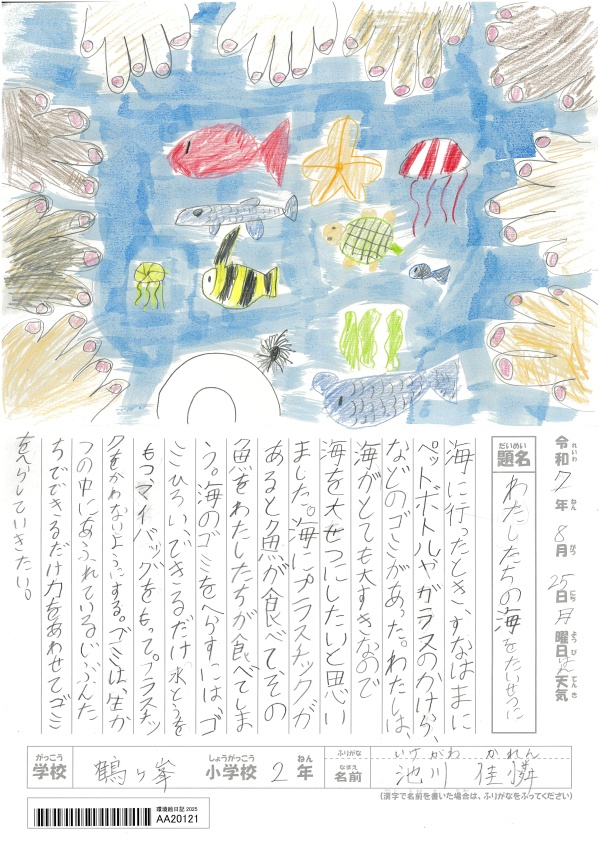 令和7年8月25日月曜日 天気
れいわ ねん がつ にち ようび てんき
だいめい
題名
わたしたちの海をたいせつに
海に行ったとき、すなはまに
ペットボトルやガラスのかけら、
などのゴミがあった。わたしは、
海がとても大すきなので
海を大せつにしたいと思い
ました。海にプラスチックが
あると魚が食べて、その
魚をわたしたちが食べてしま
う。海のゴミをへらすには、ゴ
ミひろい、できるだけ水とうを
もつ、マイバッグをもって。プラスチッ
クをかわないようにする。ゴミは、生か
つの中にあふれている。じぶんた
ちでできるだけ力をあわせてゴミ
をへらしていきたい。
がっこう しょうがっこう ねん
学校 鶴ヶ峯 小学校 2年
ふりがな いけがわ かれん
なまえ
名前 池川 佳憐
(漢字で名前を書いた場合は、ふりがなをふってください)
環境絵日記 2025
AA20121